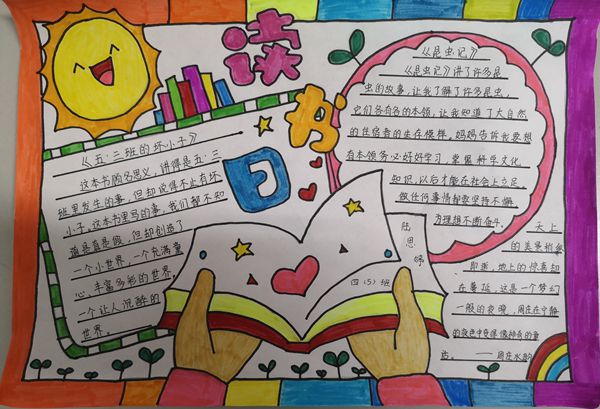 读书日
《五·三班的坏小子》
这本书顾名思义,讲得是五·三
班里发生的事,但却说得不止有坏
小子。这本书里写的事,我们都不知
道是真是假,但却创造了
一个小世界,一个充满童
心、丰富多彩的世界。
一个让人沉醉的
世界。
《昆虫记》
《昆虫记》讲了许多昆
虫的故事,让我了解了许多昆虫,
它们各有各的本领,让我知道了大自然
的住宿者的生存模样。妈妈告诉我要想
有本领务必好好学习,掌握科学文化
知识,以后才能在社会上立足,
做任何事情都要坚持不懈,
为理想不断奋斗。
陆思
四(5)班
天上
的美景稍纵
即逝,地上的惊喜却
在蔓延,这是一个梦幻
一般的夜晚,周庄在宁静
的夜色中变得像神奇的童
话。——周庄水韵